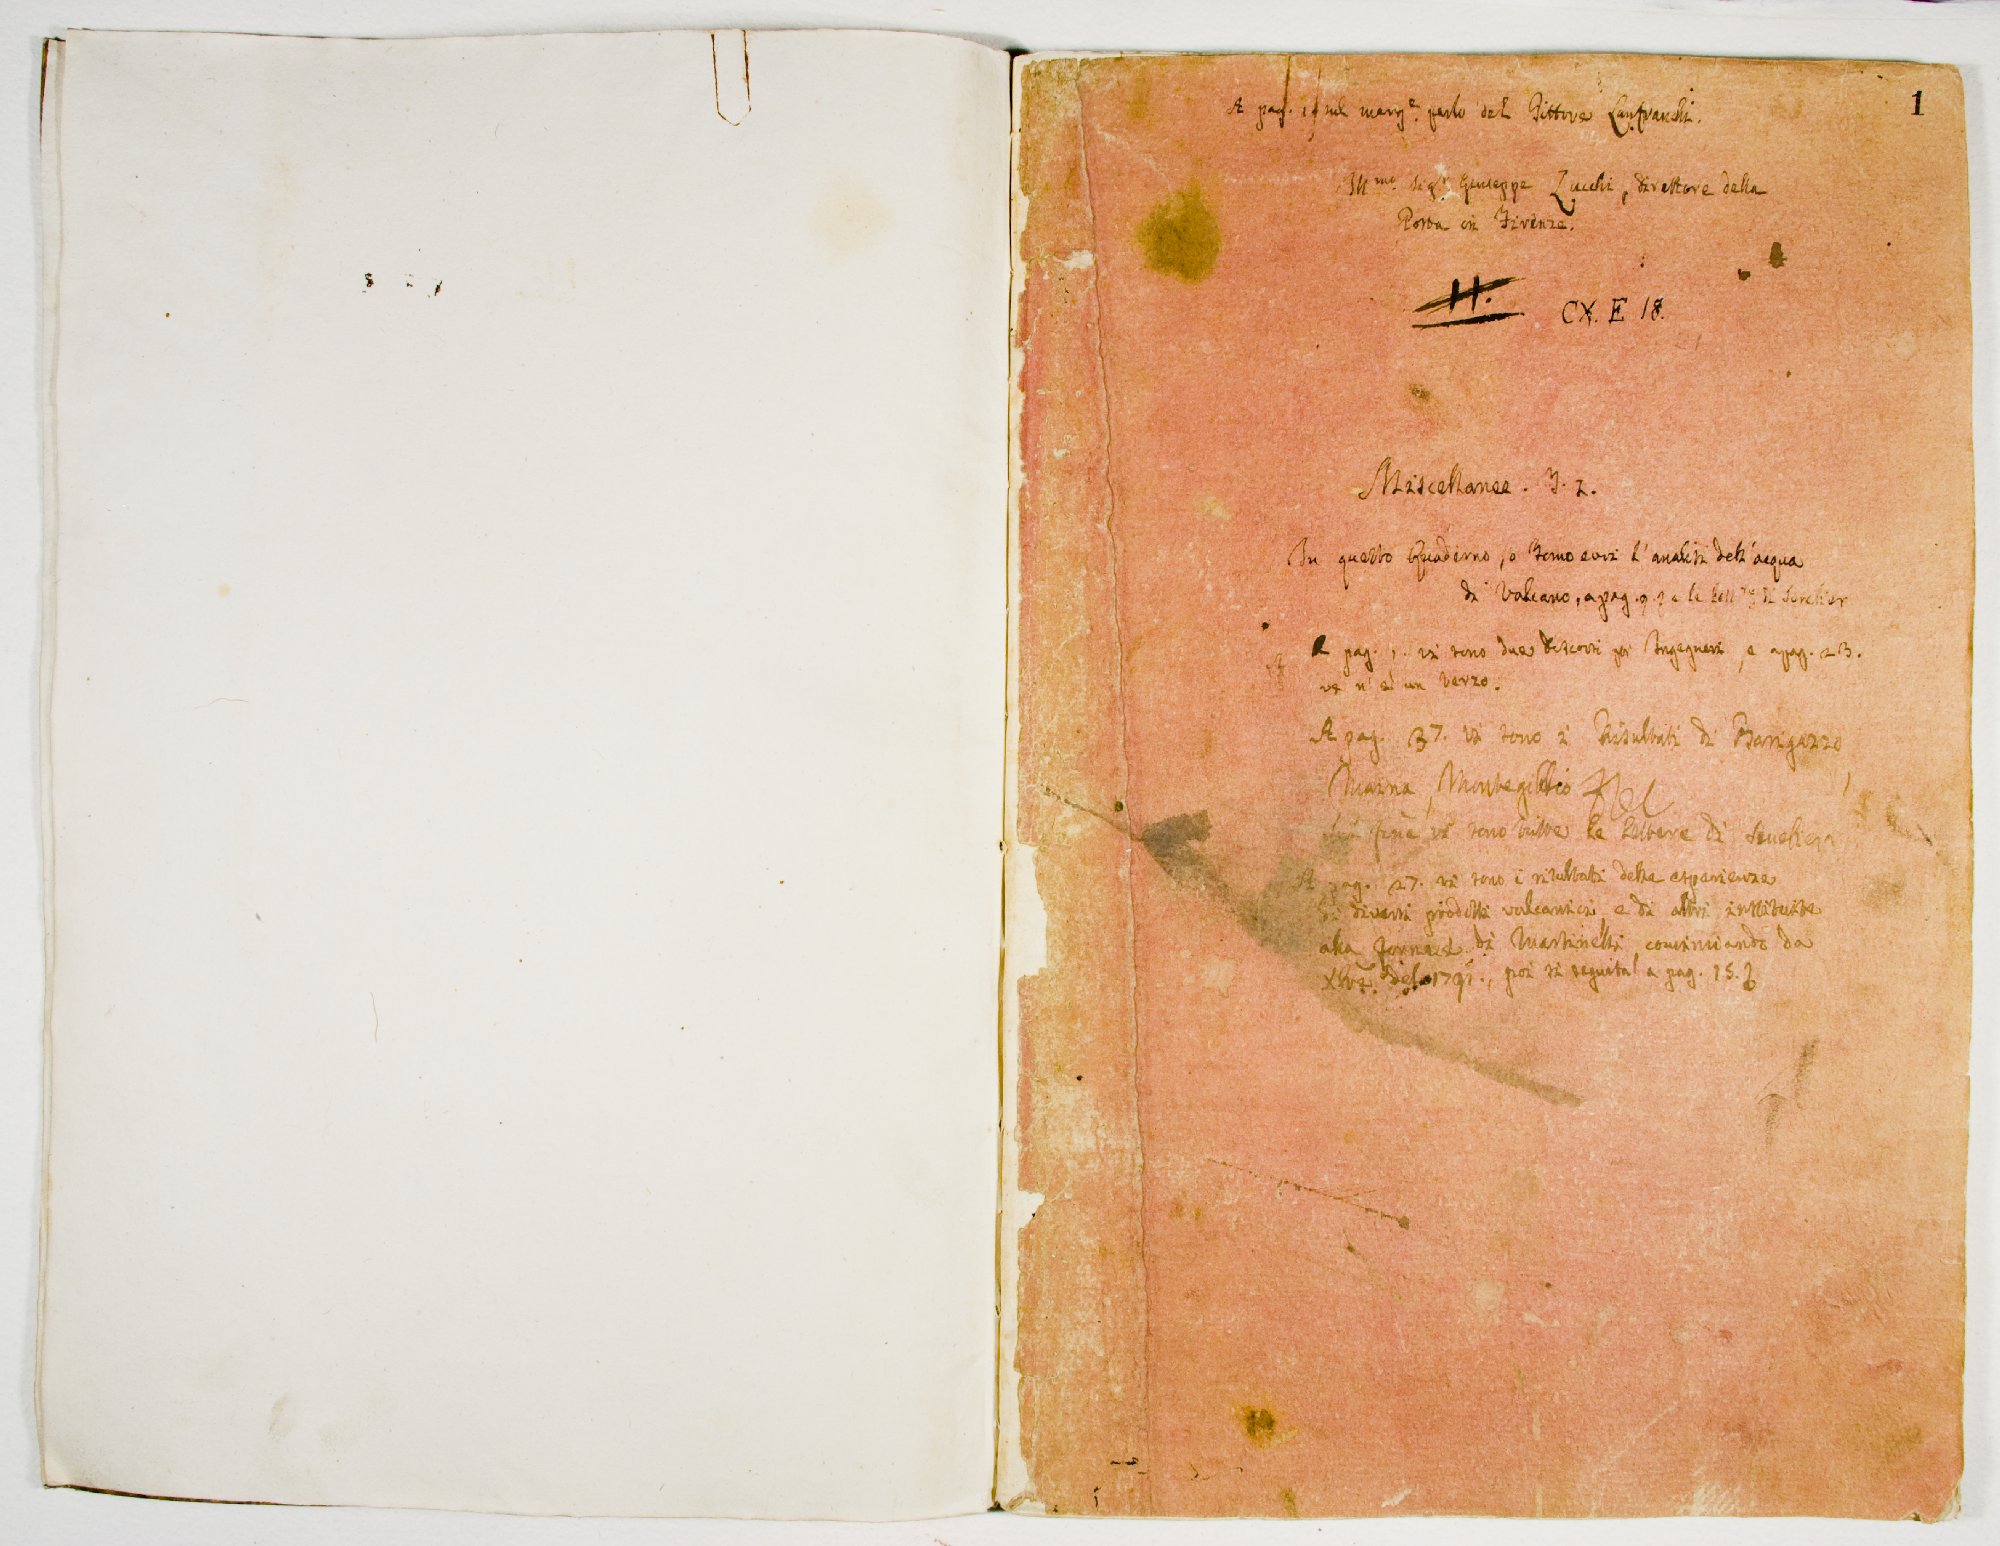 1
A pag. 19 nel marg.e parlo del Pittore Lanfranchi.
Ill.mo Sig.r Giuseppe Zucchi, direttore della
Posta in Firenze.
11. CX. E 18.
Miscellanee. T. 2.
In questo Quaderno, o Tomo evvi l'analisi dell'acqua
di Vulcano, a pag. e le
A pag. vi sono due discorsi per Ingegneri, e a pag. 23.
ve n'è un terzo.
A pag. 37. vi sono i Risultati di Barigazzo
Maina, Montegibbio
fine vi sono tutte le lettere di
A pag. 27. vi sono i risultati delle esperienze
di diversi prodotti vulcanici, e di altri instituite
alla fornace di Martinelli, cominciando da
Xbre del 1791., poi si seguita a pag. 15.